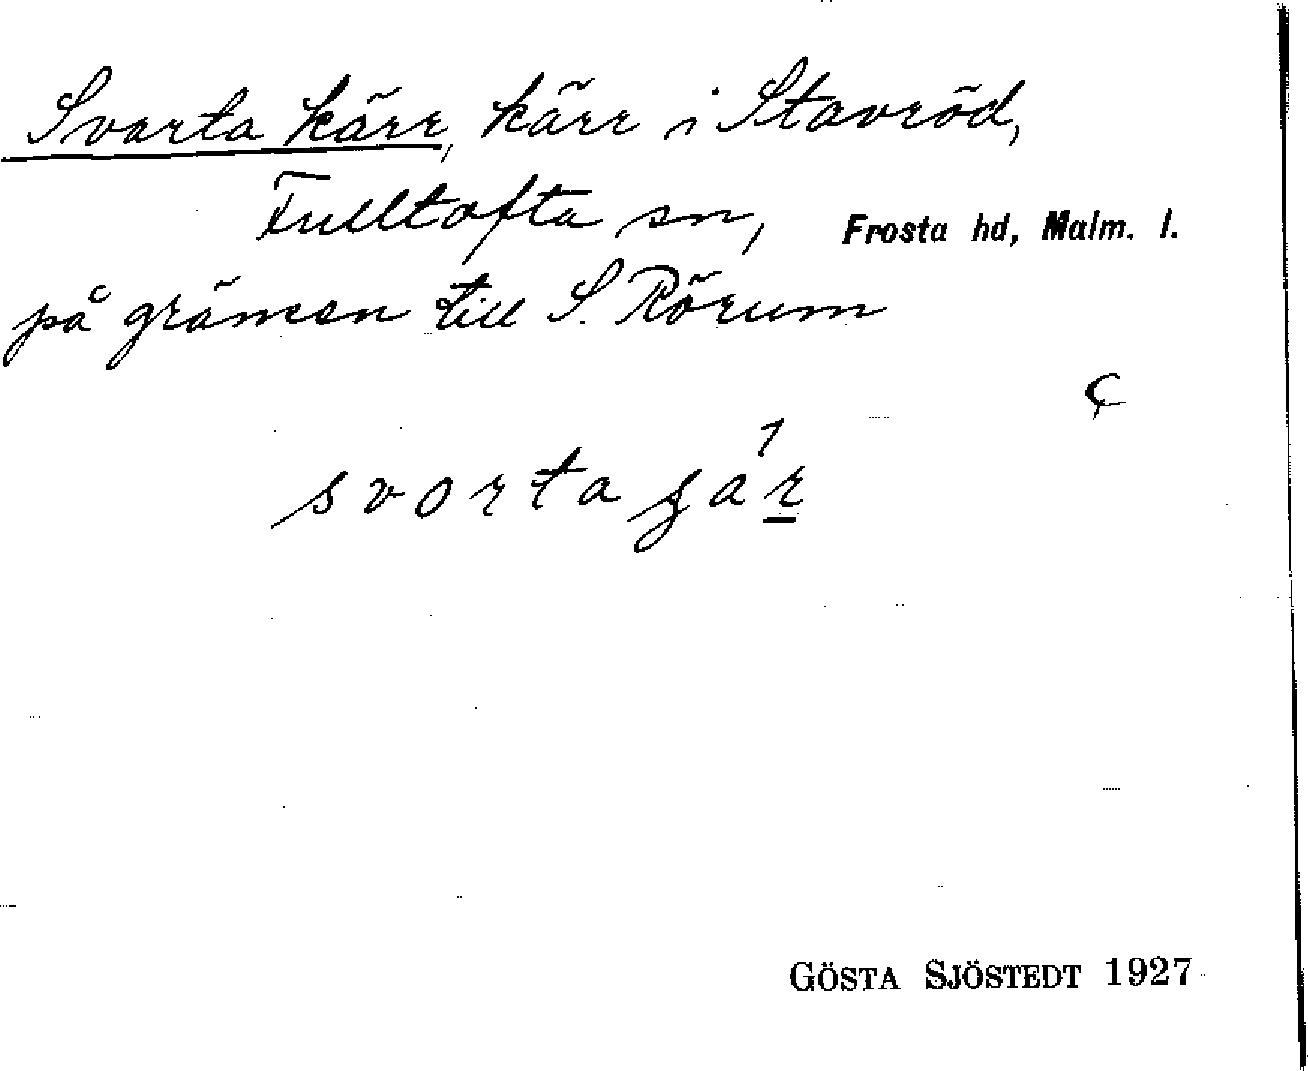 Svarta kärr, kärr i Stavröd,
Fulltofta sn, Frosta hd, Malm. l.
på gränsen till S. Rörum
GÖSTA SJÖSTEDT 1927